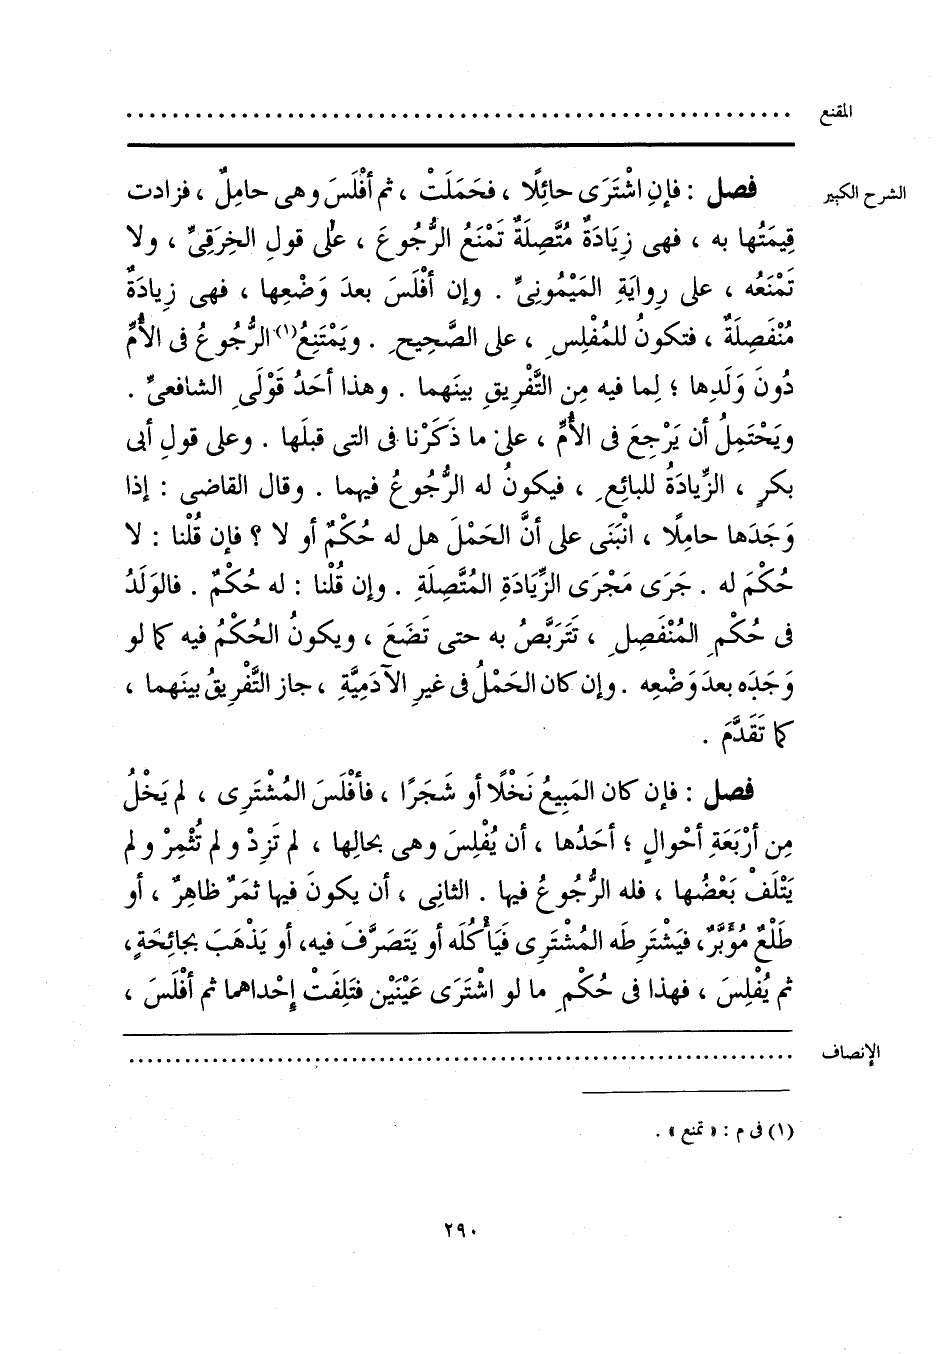 المقنع ............................................................
الشرح الكبير فصل : فإنِ اشْتَرَى حائِلًا ، فحَمَلَتْ ، ثم أفْلَسَ وهى حامِلٌ ، فزادت
قِيمَتُها به ، فهى زِيَادَةٌ مُتَّصِلَةٌ تَمْنَعُ الرُّجُوعَ ، على قولِ الخِرَقِىِّ ، ولا
تَمْنَعُه ، على روايَةِ المَيْمُونِىِّ . وإن أفْلَسَ بعدَ وَضْعِها ، فهى زيادَةٌ
مُنْفَصِلَةٌ ، فتكونُ للمُفْلِسِ ، على الصَّحِيحِ . ويَمْتَنِعُ(١) الرُّجُوعُ فى الأُمِّ
دُونَ وَلَدِها ؛ لِما فيه مِن التَّفْرِيقِ بينَهما . وهذا أحَدُ قَوْلَىِ الشافعىِّ .
ويَحْتَمِلُ أن يَرْجِعَ فى الأُمِّ ، على ما ذَكَرْنا فى التى قبلَها . وعلى قولِ أبى
بكرٍ ، الزِّيادَةُ للبائِعِ ، فيكونُ له الرُّجُوعُ فيهما . وقال القاضى : إذا
وَجَدَها حامِلًا ، انْبَنَى على أنَّ الحَمْلَ هل له حُكْمٌ أو لا ؟ فإن قُلْنا : لا
حُكْمَ له . جَرَى مَجْرَى الزِّيَادَةِ المُتَّصِلَةِ . وإن قُلْنا : له حُكْمٌ . فالوَلَدُ
فى حُكْمِ المُنْفَصِلِ ، تَتَرَبَّصُ به حتى تَضَعَ ، ويكونُ الحُكْمُ فيه كما لو
وَجَدَه بعدَ وَضْعِه . وإن كان الحَمْلُ فى غيرِ الآدَمِيَّةِ ، جاز التَّفْرِيقُ بينَهما ،
كما تَقَدَّمَ .
فصل : فإن كان المَبِيعُ نَخْلًا أو شَجَرًا ، فأفْلَسَ المُشْتَرِى ، لم يَخْلُ
مِن أرْبَعَةِ أحْوالٍ ؛ أحَدُها ، أن يُفْلِسَ وهى بحالِها ، لم تَزِدْ ولم تُثْمِرْ ولم
يَتْلَفْ بَعْضُها ، فله الرُّجُوعُ فيها . الثانِى ، أن يكونَ فيها ثمَرٌ ظاهِرٌ ، أو
طَلْعٌ مُؤَبَّرٌ، فيَشْتَرِطَه المُشْتَرِى فيَأْكُلَه أو يَتَصَرَّفَ فيه، أو يَذْهَبَ بجائِحَةٍ،
ثم يُفْلِسَ ، فهذا فى حُكْمِ ما لو اشْتَرَى عَيْنَيْن فتَلِفَتْ إحْداهما ثم أفْلَسَ ،
الإنصاف ............................................................
(١) فى م : « تمنع » .
٢٩٠